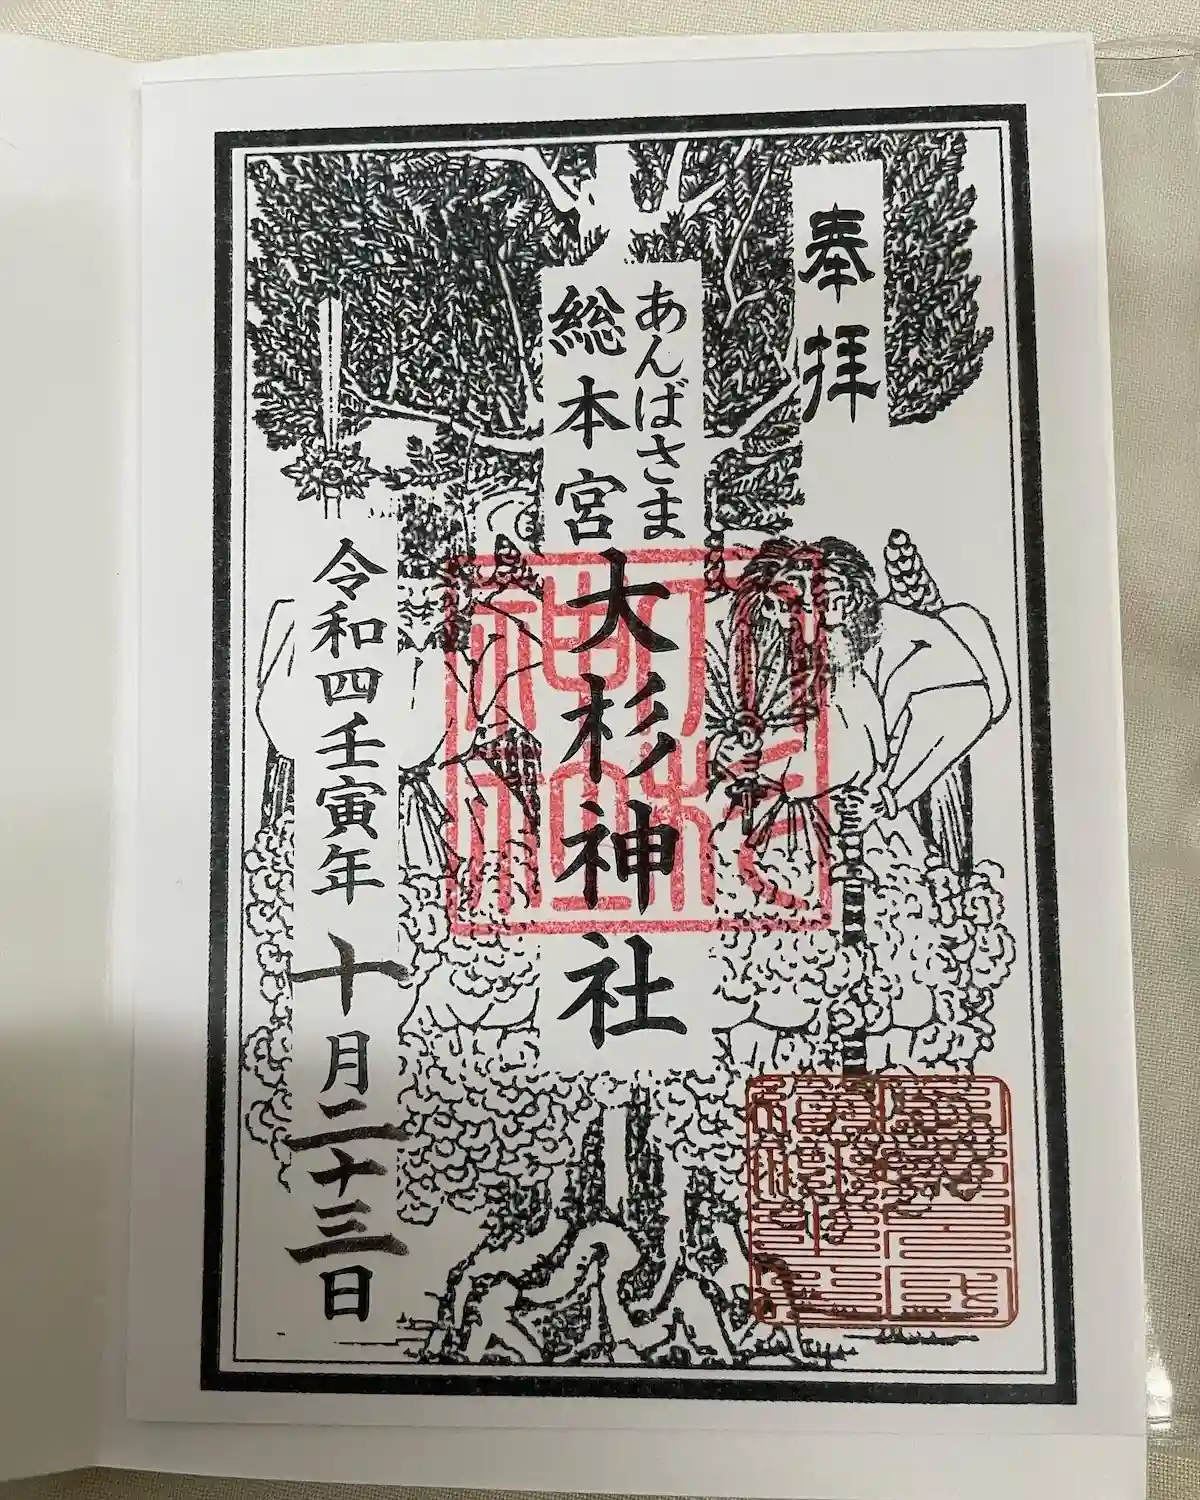 奉拝
あんばさま
総本宮大杉神社
令和四壬寅年十月二十三日
大杉神社